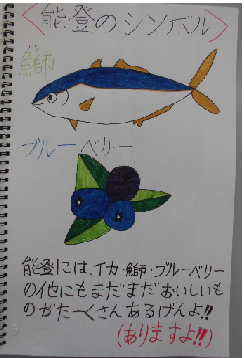 <能登のシンボル>
ぶり
鰤
ブルーベリー
能登には、イカ・鰤・ブルーベリー
の他にもまだまだおいしいも
のがた〜くさんあるげんよ!!
(ありますよ!!)